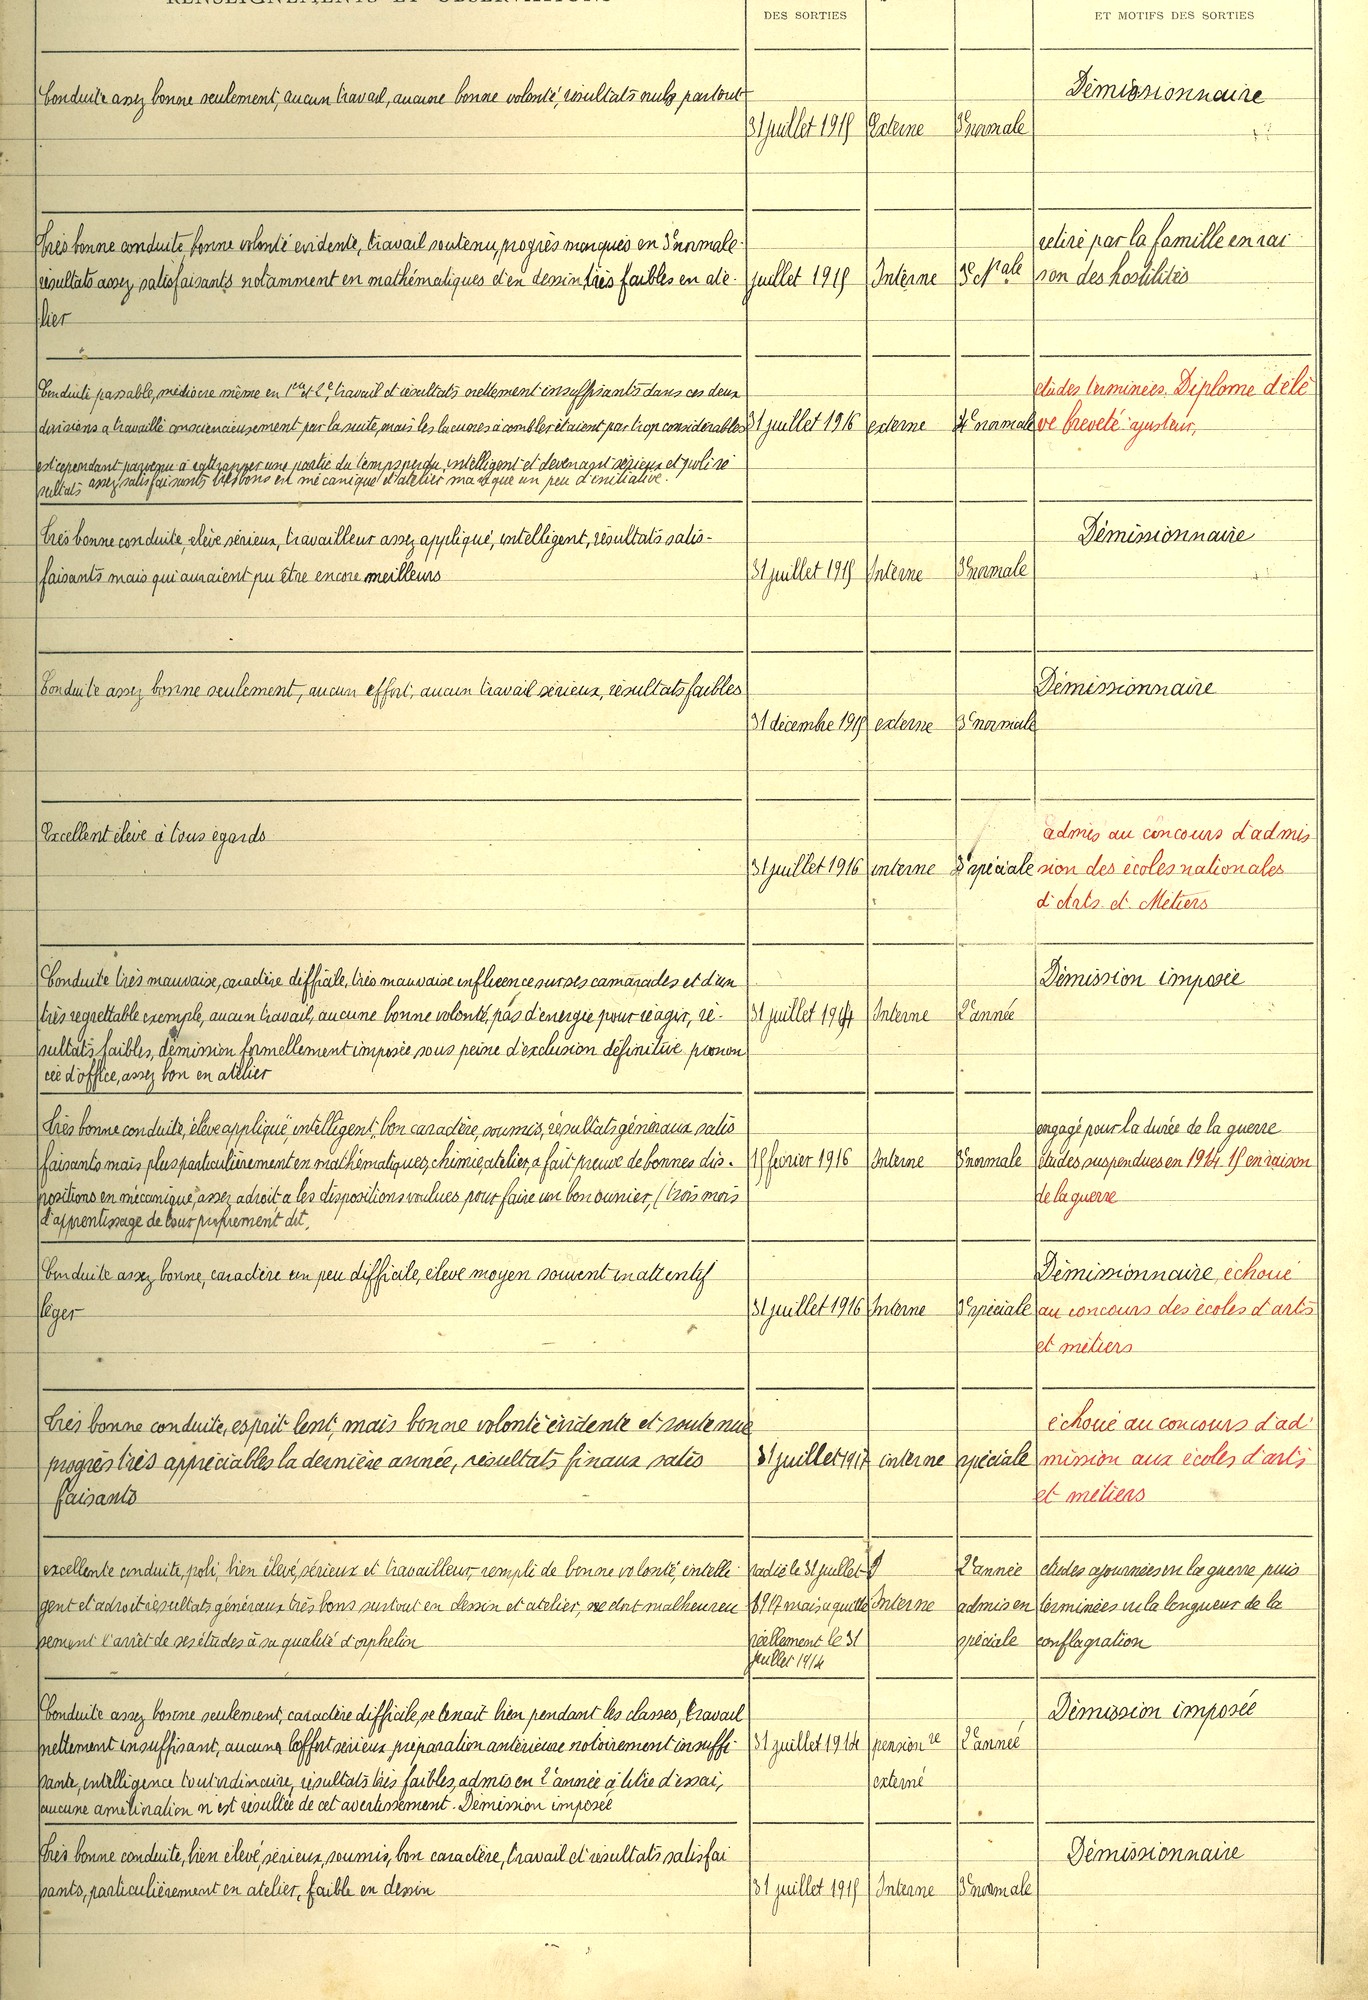 RENSEIGNEMENTS ET OBSERVATIONS
DES SORTIES
ET MOTIFS DES SORTIES
Conduite assez bonne seulement, aucun travail, aucune bonne volonté, résultats nuls partout
31 juillet 1915 Externe 3e normale
Démissionnaire
Très bonne conduite, bonne volonté évidente, travail soutenu, progrès marqués en 3e normale
résultats assez satisfaisants notamment en mathématiques et en dessin, très faibles en ate-
lier
juillet 1915 Interne 3e Nale
retiré par la famille en rai
son des hostilités
Conduite passable, médiocre même en 1ère et 2e, travail et résultats nettement insuffisants dans ces deux
divisions a travaillé consciencieusement par la suite, mais les lacunes à combler étaient par trop considérables
est cependant parvenu à rattrapper une partie du temps perdu, intelligent et devenant sérieux et poli ré
sultats assez satisfaisants très bons en mécanique et atelier manque un peu d'initiative.
31 juillet 1916 externe 4e normale
études terminées. Diplome d'élè
ve breveté: ajusteur,
Très bonne conduite, élève sérieux, travailleur assez appliqué, intelligent, résultats satis-
faisants mais qui auraient pu être encore meilleurs
31 juillet 1915 Interne 3e normale
Démissionnaire
Conduite assez bonne seulement, aucun effort, aucun travail sérieux, résultats faibles
31 décembre 1915 externe 3e normale
Démissionnaire
Excellent élève à tous égards
31 juillet 1916 interne 3e spéciale
admis au concours d'admis
sion des écoles nationales
d'Arts et Métiers
Conduite très mauvaise, caractère difficile, très mauvaise influence sur ses camarades et d'un
très regrettable exemple, aucun travail, aucune bonne volonté, pas d'énergie pour réagir, ré-
sultats faibles, démission formellement imposée sous peine d'exclusion définitive pronon
cée d'office, assez bon en atelier
31 juillet 1914 Interne 2e année
Démission imposée
Très bonne conduite, élève appliqué, intelligent, bon caractère, soumis, résultats généraux satis
faisants mais plus particulièrement en mathématiques, chimie, atelier, a fait preuve de bonnes dis-
positions en mécanique, assez adroit a les dispositions voulues pour faire un bon ouvrier, (trois mois
d'apprentissage de tour proprement dit,
15 février 1916 Interne 3e normale
engagé pour la durée de la guerre
études suspendues en 1914.15 en raison
de la guerre
Conduite assez bonne, caractère un peu difficile, élève moyen souvent inattentif
léger
31 juillet 1916 Interne 3e spéciale
Démissionnaire, échoué
au concours des écoles d'arts
et métiers
Très bonne conduite, esprit lent, mais bonne volonté évidente et soutenue
progrès très appréciables la dernière année, résultats finaux satis
faisants
31 juillet 1917 interne spéciale
échoué au concours d'ad
mission aux écoles d'arts
et métiers
excellente conduite, poli, bien élevé, sérieux et travailleur, rempli de bonne volonté, intelli-
gent et adroit résultats généraux très bons surtout en dessin et atelier, ne doit malheureu
sement l'arrêt de ses études à sa qualité d'orphelin
radié le 31 juillet
1917 mais a quitté
réellement le 31
juillet 1914
Interne
2e année
admis en
spéciale
études ajournées vu la guerre puis
terminées vu la longueur de la
conflagration
Conduite assez bonne seulement, caractère difficile, se tenait bien pendant les classes, travail
nettement insuffisant, aucun effort sérieux préparation antérieure notoirement insuffi-
sante, intelligence tout ordinaire, résultats très faibles, admis en 2e année à titre d'essai,
aucune amélioration n'est résultée de cet avertissement. Démission imposée
31 juillet 1914 pensionre 2e année
externé
Démission imposée
Très bonne conduite, bien élevé, sérieux, soumis, bon caractère, travail et résultats satisfai
sants, particulièrement en atelier, faible en dessin
31 juillet 1915 Interne 3e normale
Démissionnaire